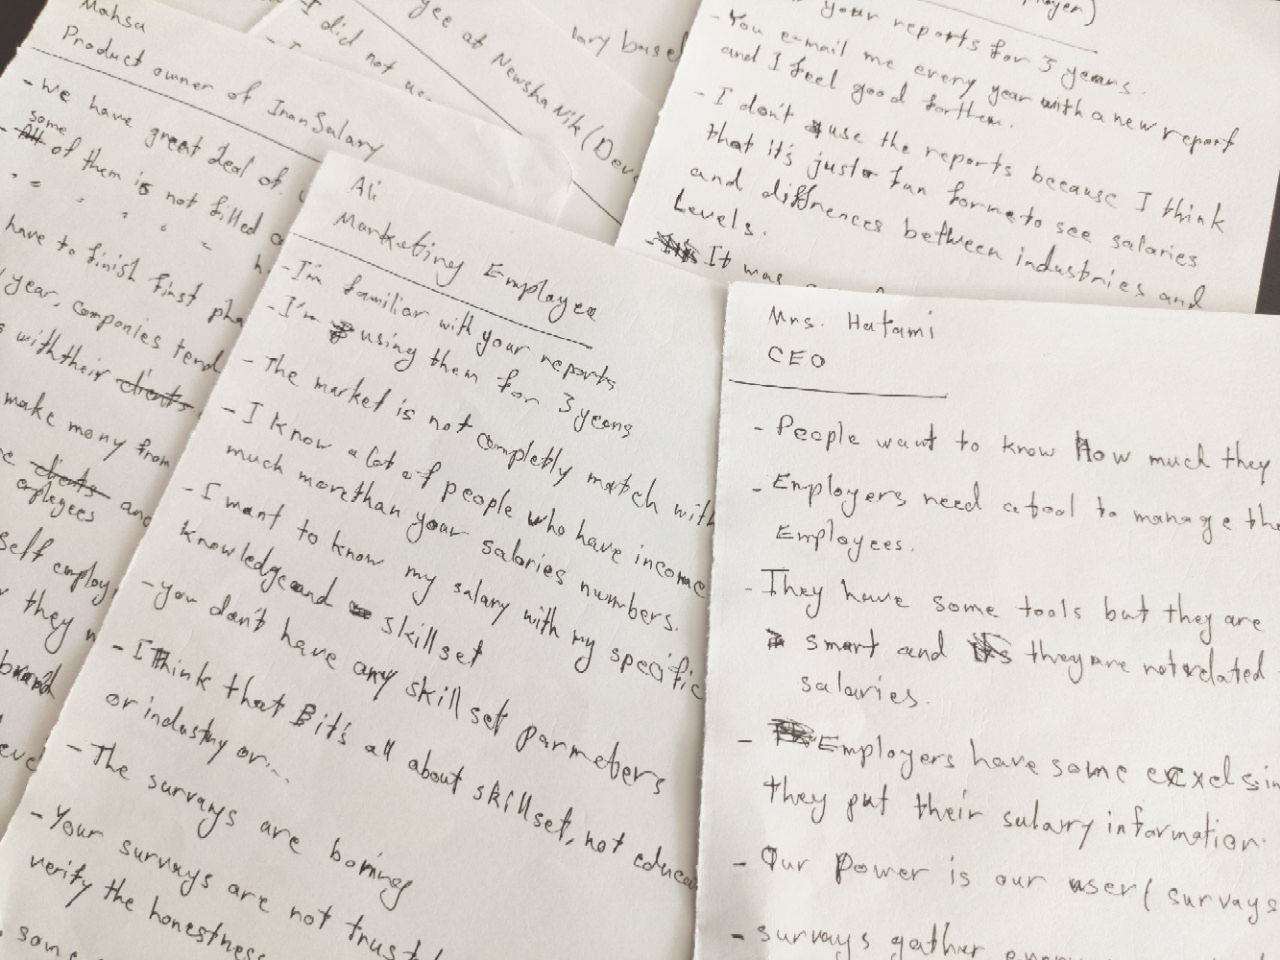 Mahsa
Product owner of IranSalary
- we have great deal of
some
- of them is not filled
have to finish first pha
year, companies tend
withtheir clients
make mony from
clients and
emplyees
self employ
they
brand
- I did
not us
yee at Newsha Nik (Deve
lary base
oyer)
your reports for 3 years.
- You e-mail me every year with a new report
and I feel good forthem.
- I don't use the reports because I think
that it's just a fun forme to see salaries
and diffrences between industries and
Levels.
It was
Ali
Marketing Employee
- I'm familiar with your reports
- I'm using them for 3 years
- The market is not completly match with
- I know a lot of people who have income
much morethan your salaries numbers.
- I want to know my salary with my specific
knowledge and skill set
- you don't have any skill set parmeters
- I Think that it's all about skill set, not educa
or industry or...
- The survays are boring
- Your survays are not trust
verify the honestness
some
Mrs. Hatami
CEO
- People want to know How much they
- Employers need a tool to manage the
Employees.
- They have some tools but they are
smart and they are not related
salaries.
- Employers have some excels in
they put their salary information.
- Our Power is our user (survays
- survays gather